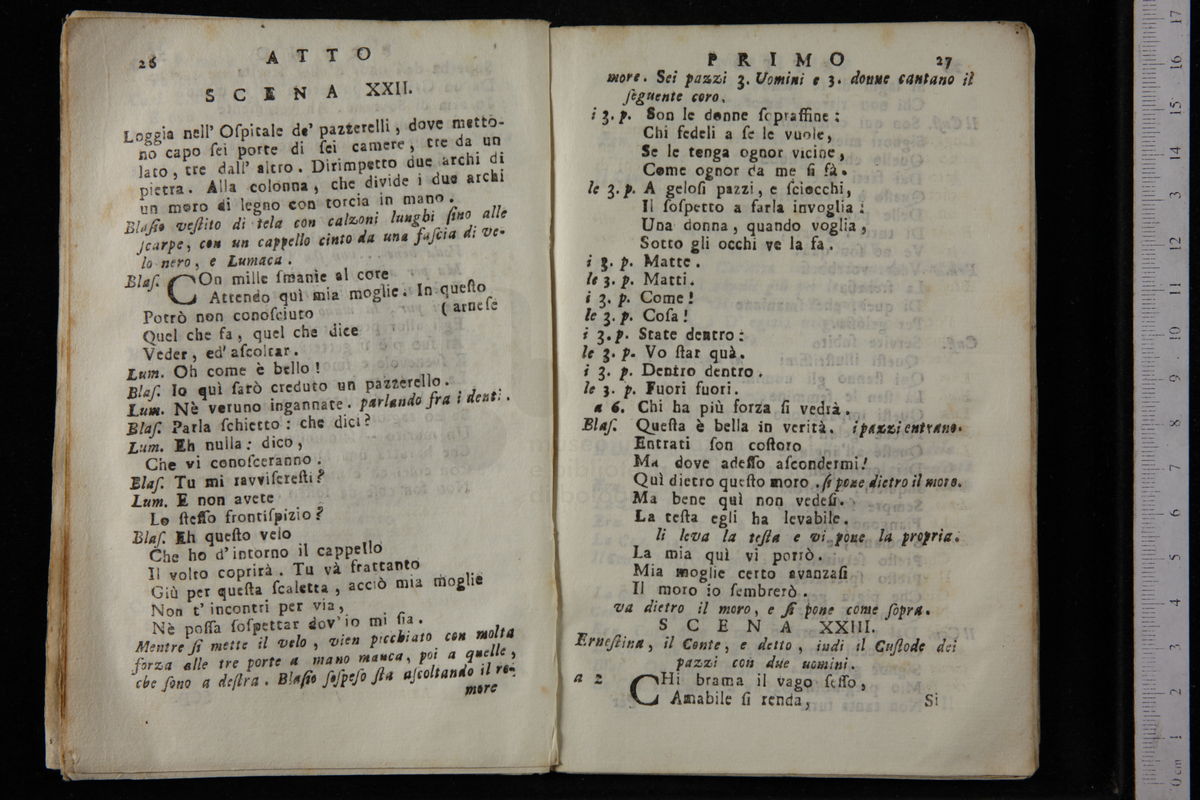 26 ATTO
SCENA XXII.
Loggia nell' Oſpitale de' pazzerelli, dove metto-
no capo ſei porte di ſei camere, tre da un
lato, tre dall' altro. Dirimpetto due archi di
pietra. Alla colonna, che divide i due archi
un moro di legno con torcia in mano.
Blaſio veſtito di tela con calzoni lunghi ſino alle
ſcarpe, con un cappello cinto da una faſcia di ve-
lo nero, e Lumaca.
Blaſ. COn mille ſmanie al core
Attendo quì mia moglie. In queſto
Potrò non conoſciuto (arneſe
Quel che fa, quel che dice
Veder, ed' aſcoltar.
Lum. Oh come è bello!
Blaſ. Io quì ſarò creduto un pazzerello.
Lum. Nè veruno ingannate. parlando fra i denti.
Blaſ. Parla ſchietto: che dici?
Lum. Eh nulla: dico,
Che vi conoſceranno.
Blaſ. Tu mi ravviſereſti?
Lum. E non avete
Lo ſteſſo frontiſpizio?
Blaſ. Eh queſto velo
Che ho d'intorno il cappello
Il volto coprirà. Tu và frattanto
Giù per queſta ſcaletta, acciò mia moglie
Non t'incontri per via,
Nè poſſa ſoſpettar dov'io mi ſia.
Mentre ſi mette il velo, vien picchiato con molta
forza alle tre porte a mano manca, poi a quelle,
che ſono a deſtra. Blaſio ſoſpeſo ſta aſcoltando il ro-
more
PRIMO 27
more. Sei pazzi 3. Uomini e 3. donne cantano il
ſeguente coro.
i 3. p. Son le donne ſopraffine:
Chi fedeli a ſe le vuole,
Se le tenga ognor vicine,
Come ognor da me ſi fà.
le 3. p. A geloſi pazzi, e ſciocchi,
Il ſoſpetto a farla invoglia:
Una donna, quando voglia,
Sotto gli occhi ve la fa.
i 3. p. Matte.
le 3. p. Matti.
i 3. p. Come!
le 3. p. Coſa!
i 3. p. State dentro:
le 3. p. Vo ſtar quà.
i 3. p. Dentro dentro.
le 3. p. Fuori fuori.
a 6. Chi ha più forza ſi vedrà.
Blaſ. Queſta è bella in verità. i pazzi entrano.
Entrati ſon coſtoro
Ma dove adeſſo aſcondermi!
Quì dietro queſto moro. ſi pone dietro il moro.
Ma bene quì non vedeſi.
La teſta egli ha levabile.
li leva la teſta e vi pone la propria.
La mia quì vi porrò.
Mia moglie certo avanzaſi
Il moro io ſembrerò.
va dietro il moro, e ſi pone come ſopra.
SCENA XXIII.
Erneſtina, il Conte, e detto, indi il Cuſtode dei
pazzi con due uomini.
a 2 CHi brama il vago ſeſſo,
Amabile ſi renda,
Si